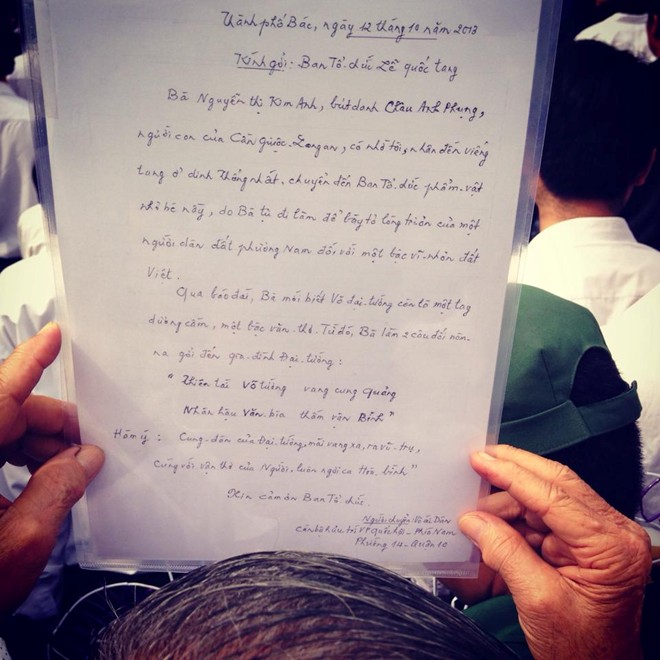 Thành phố Bác, ngày 12 tháng 10 năm 2013
Kính gởi: Ban Tổ chức Lễ quốc tang
Bà Nguyễn thị Kim Anh, bút danh Châu Anh Phụng,
người con của Cần Giuộc-Longan, có nhờ tôi, nhân đến viếng
tang ở dinh Thống nhất, chuyển đến Ban Tổ chức phẩm vật
nhỏ bé này, do Bà tự đi làm để bày tỏ lòng tri ơn của một
người dân đất phương Nam đối với một bậc vĩ nhân đất
Việt.
Qua báo đài, Bà mới biết Võ đại tướng còn là một tay
dương cầm, một bậc văn thơ. Từ đó, Bà làm 2 câu đối nôm
na gởi đến gia đình Đại tướng:
"Thiên tài Võ tướng vang cung Quảng
Nhân hậu Văn bia thấm vận Bình"
Hàm ý: Cung đàn của Đại tướng, mãi vang xa, ra vũ trụ,
Cùng với vận thơ của Người luôn ngợi ca Hòa bình"
Xin cảm ơn Ban Tổ chức.
Người chuyển
Cán bộ hưu trí VP Quốc hội - Phía Nam
Phường 14 - Quận 10